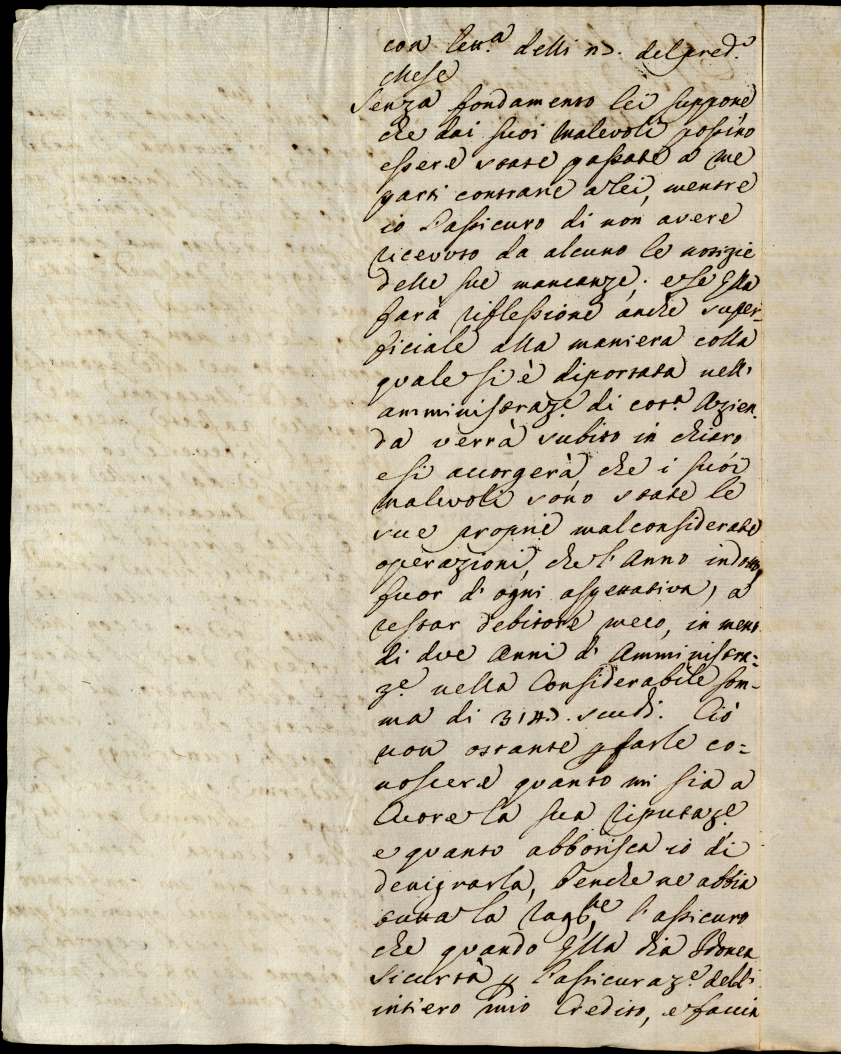 con lett.ª delli n3. del pred.º
Mese
Senza fondamento lei suppone
che dai suoi malevoli possino
essere state passate a me
parti contrarie a lei, mentre
io l'assicuro di non avere
ricevuto da alcuno le notizie
delle sue mancanze; e se Ella
farà riflessione anche super-
ficiale alla maniera colla
quale si è diportata nell'
amministraz.e di cot.ª Azien-
da verrà subito in chiaro
e si accorgerà che i suoi
malevoli sono state le
sue proprie malconsiderate
operazioni, che l'Anno indotto,
fuor d'ogni aspettativa, a
restar debitore meco, in meno
di due Anni d'Amministra=
z.e nella Considerabile som-
ma di scudi. Ciò
non ostante p farle co=
noscere quanto mi sia a
Cuore la sua riputaz.e
e quanto abborisca io di
denigrarla, benche ne abbia
tutta la rag.ne l'assicuro
che quando Ella dia Idonea
sicurtà p l'assicuraz.e dell'
intiero mio Credito, e faccia